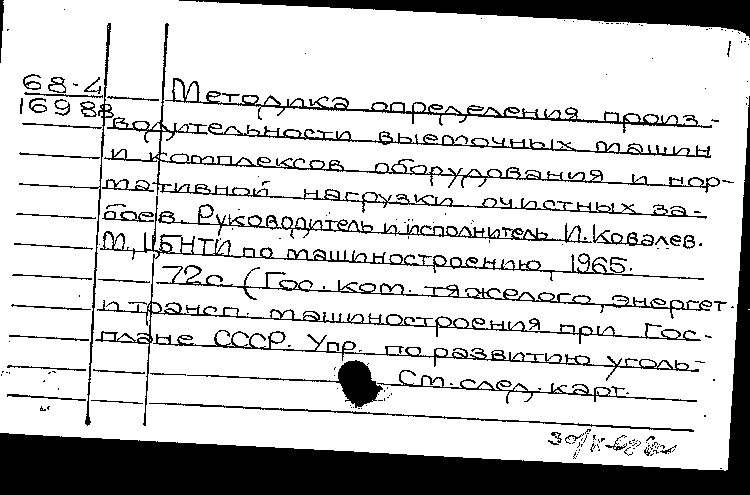 68-4
16988
Методика определения произ-
водительности выемочных машин
и комплексов оборудования и нор-
мативной нагрузки очистных за-
боев. Руководитель и исполнитель И. Ковалев.
М., ЦБНТИ по машиностроению, 1965.
72с (Гос. ком. тяжелого, энергет.
и трансп. машиностроения при Гос-
плане СССР. Упр. по развитию уголь-
См. след. карт.